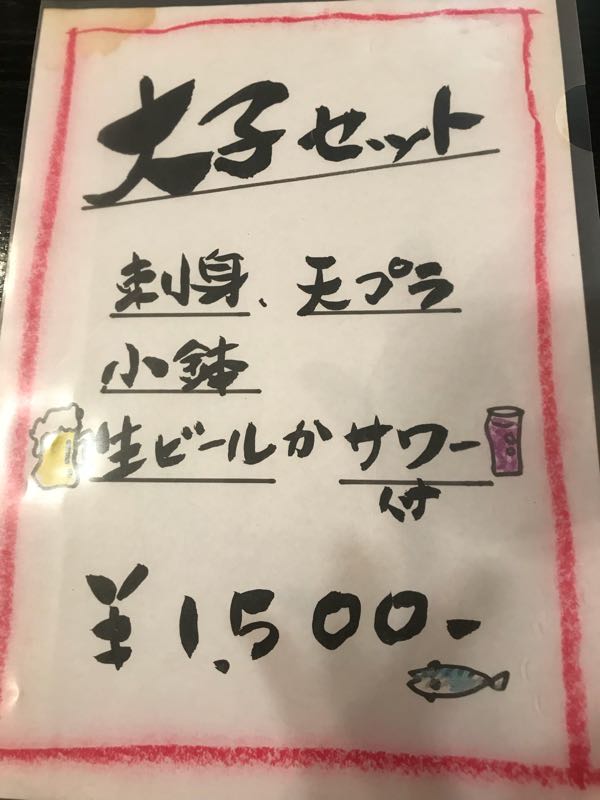 大子セット
刺身、天プラ
小鉢
生ビールかサワー
付
¥1,500-